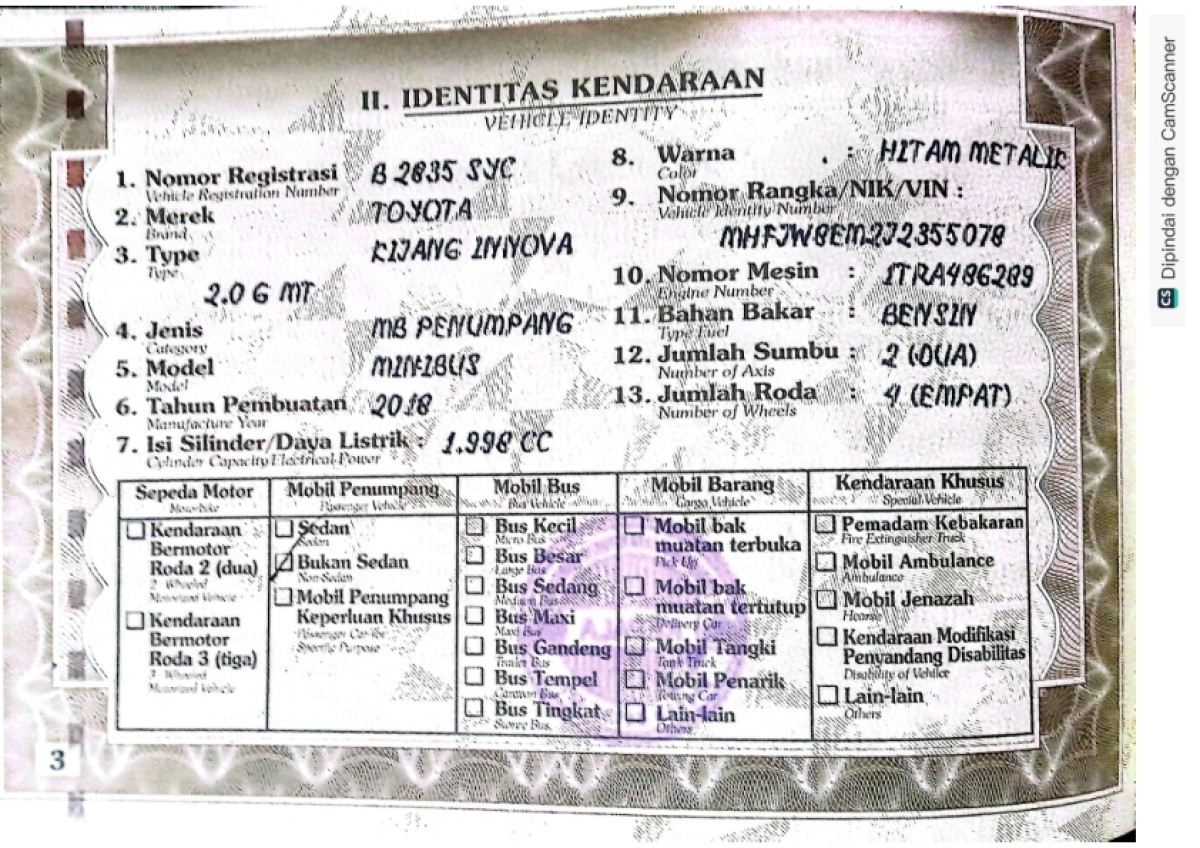 II. IDENTITAS KENDARAAN
VEHICLE IDENTITY
1. Nomor Registrasi B 2835 SYC
Vehicle Registration Number
2. Merek TOYOTA
Brand
3. Type KIJANG INNOVA
Type
2.0 G MT
4. Jenis MB PENUMPANG
Category
5. Model MINIBUS
Model
6. Tahun Pembuatan 2018
Manufacture Year
7. Isi Silinder/Daya Listrik : 1.998 CC
Cylinder Capacity/Electrical Power
8. Warna : HITAM METALIK
Color
9. Nomor Rangka/NIK/VIN :
Vehicle Identity Number
MHFJW8EM2J2355078
10. Nomor Mesin : 1TRA486289
Engine Number
11. Bahan Bakar : BENSIN
Type Fuel
12. Jumlah Sumbu : 2 (DUA)
Number of Axis
13. Jumlah Roda : 4 (EMPAT)
Number of Wheels
Sepeda Motor
Motorbike
Kendaraan
Bermotor
Roda 2 (dua)
2 Wheeled
Motorized Vehicle
Kendaraan
Bermotor
Roda 3 (tiga)
3 Wheeled
Motorized Vehicle
Mobil Penumpang
Passenger Vehicle
Sedan
Sedan
Bukan Sedan
Non-Sedan
Mobil Penumpang
Keperluan Khusus
Passenger Car for
Specific Purpose
Mobil Bus
Bus Vehicle
Bus Kecil
Micro Bus
Bus Besar
Large Bus
Bus Sedang
Medium Bus
Bus Maxi
Maxi Bus
Bus Gandeng
Trailer Bus
Bus Tempel
Caravan Bus
Bus Tingkat
Bus
Mobil Barang
Cargo Vehicle
Mobil bak
muatan terbuka
Pick Up
Mobil bak
muatan tertutup
Delivery Car
Mobil Tangki
Tank Truck
Mobil Penarik
Towing Car
Lain-lain
Others
Kendaraan Khusus
Special Vehicle
Pemadam Kebakaran
Fire Extinguisher Truck
Mobil Ambulance
Ambulance
Mobil Jenazah
Hearse
Kendaraan Modifikasi
Penyandang Disabilitas
Disability of Vehilce
Lain-lain
Others
3
CS Dipindai dengan CamScanner